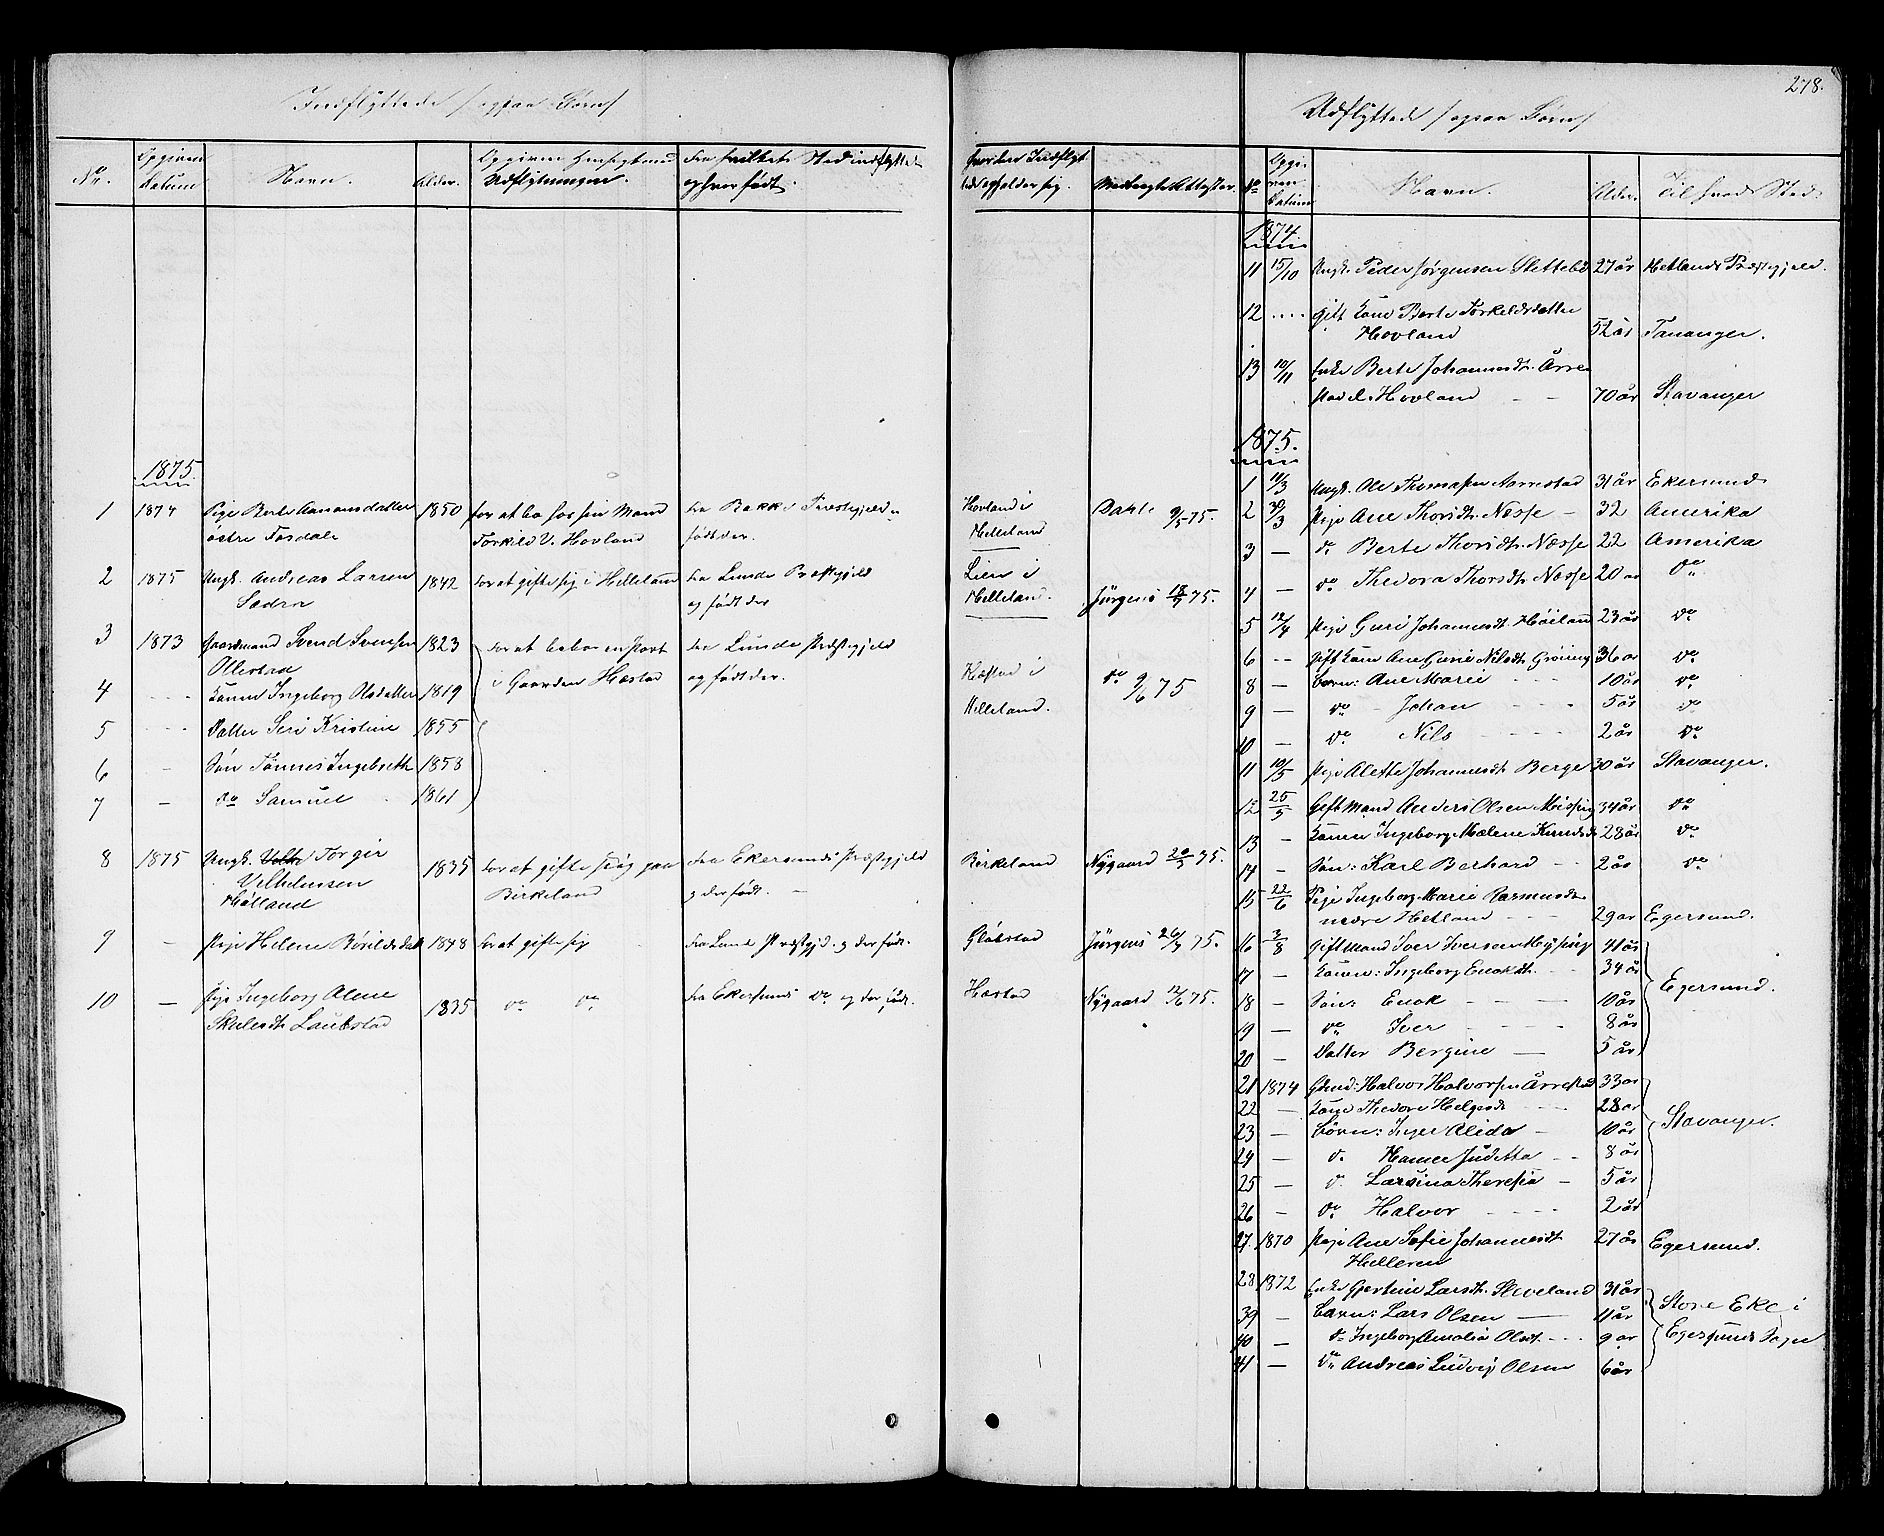 278.
Indflyttede (ogsaa Børn)
No. Opgiven Datum Navn. Alder. Opgiven Hensigt med Udflytningen. Fra hvilket Sted indflyttet og hvor født. Hvorhen Indflyt- tede opholder sig. Medbragte Attester.
1875.
1 1874 Pige Berte Aamonsdatter 1850 for at bo hos sin Mand fra Bakke Præstegjeld Hovland i Dahl 9/5 75.
østre Tosdal Torkild V. Hovland født der. Helleland
2 1875 Ungk. Andreas Larsen 1842 for at gifte sig i Helleland fra Lunde Præstegjeld Lien i Jürgens 18/7 75.
og født der Helleland.
3 1873 Gaardmand Svend Svensen 1823 for at bebo en Part fra Lunde Præstegjeld
Ollestad i Gaarden Hæstad og født der. Hæstad i do 9/6 75
4 Konen Ingeborg Olsdatter 1819 Helleland.
5 Datter Seri Kristine 1855
6 - Søn Tønnes Ingebreth 1858
7 - do Samuel 1861
8 1875 Ungk. Torgir 1835 for at gifte sig paa fra Ekersunds Præstegjeld Birkeland Nygaard
Vilhelmsen Birkeland og der født.
Hølland
9 - Pige Helene 1848 for at gifte sig fra Lunde Præstgjd. og der født. Gløbstad Jürgens 26/7 75.
10 - Pige Ingeborg Olene 1835 do do fra Ekersunds do og der født. Hæstad Nygaard 12/6 75.
Skulesdtr. Laubstad
Udflyttede (ogsaa Børn)
No Opgi- ven Datum Navn. Alder. Til hvad Sted.
1874.
11 15/10 Ungk. Peder Jørgensen Slettebø 27 år Hetlands Præstegjeld.
12 .... gift Kone Berte Torkildsdatter
Hovland 52 år Tananger.
13 10/11 Enke Berte Johannesdtr. Årre-
stad l. Hovland - - 70 år Stavanger
1875.
1 11/3 Ungk. Ole Thomassen Aarrestad 31 år Ekersund
2 30/3 Pige Ane Thorsdtr. Næsse - 32 Amerika
3 - do Berte Thorsdtr. Næsse 22 Amerika
4 - do Thedora Thorsdtr. Næsse 20 år do
5 12/4 Pige Guri Johannesdt. Høiland 23 år do
6 -- Gift Kone Ane Gurie Nilsdt. Grøning 36 år do
8 - Barn: Ane Marie 10 år do
9 - do Johan 5 år do
10 - do Nils 2 år do
11 10/5 Pige Alette Johannesdt. Berge 30 år Stavanger.
12 25/5 Gift Mand Anders Olsen Møising 34 år do
13 - Konen Ingeborg Malene Knudsdt. 28 år do
14 - Søn: Karl Berhard 2 år do
15 22/6 Pige Ingeborg Marie Rasmusdt.
nedre Hetland 29 år Egersund.
16 3/8 Gift Mand Iver Iversen Møysing 41 år
17 - Konen: Ingeborg Enoksdt. 34 år
18 - Søn: Enok 10 år Egersund.
19 - do Iver 8 år
20 - Datter Bergine 5 år
21 1874 Gdmd: Halvor Halvorsen Årrestad 33 år
22 - Kone Thedore Helgesdt. 28 år
23 - Børn: Inger Alida 10 år Stavanger.
24 - do Hanne Judetta 8 år
25 - do Larsina Theresia 5 år
26 - do Halvor 2 år
27. 1870 Pige Ane Sofie Johannesdt 27 år Egersund.
Helleren
28 1872 Enke Gjertine Larsdt. Sleveland 31 år
39 - Barn: Lars Olsen 11 år Store Eke i
40 - do Ingeborg Amalia Olsdt. 9 år Egersunds Sogn
41 - do Andreas Ludvig Olsen 6 år